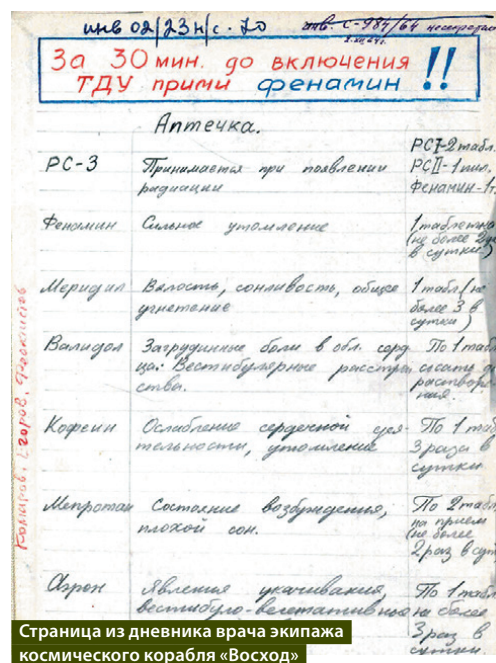 инв 02/23н/с-20
инв. С-984/64
За 30 мин. до включения
ТДУ прими фенамин !!
Аптечка.
РС-3
Принимается при появлении
радиации
РСI-2 табл.
РСII-1 пил.
Фенамин-1т.
Фенамин
Сильное утомление
1 таблетка
(не более 2
в сутки)
Меридил
Вялость, сонливость, общее
угнетение
1 табл. (не
более 3 в
сутки)
Валидол
Загрудинные боли в обл. серд
ца. Вестибулярные расстрой
ства.
По 1 табл
сосать до
растворе
ния.
Кофеин
Ослабление сердечной дея-
тельности, утомление
По 1 таб
3 раза в
сутки
Мепротан
Состояние возбуждения,
плохой сон.
По 2 табл
на прием
(не более
2 раз в сут
Аэрон
Явления укачивания,
вестибуло-вегетативные
По 1 табл
не более
3 раз в
сутки.
Комаров, Егоров, Феоктистов
Страница из дневника врача экипажа
космического корабля «Восход»